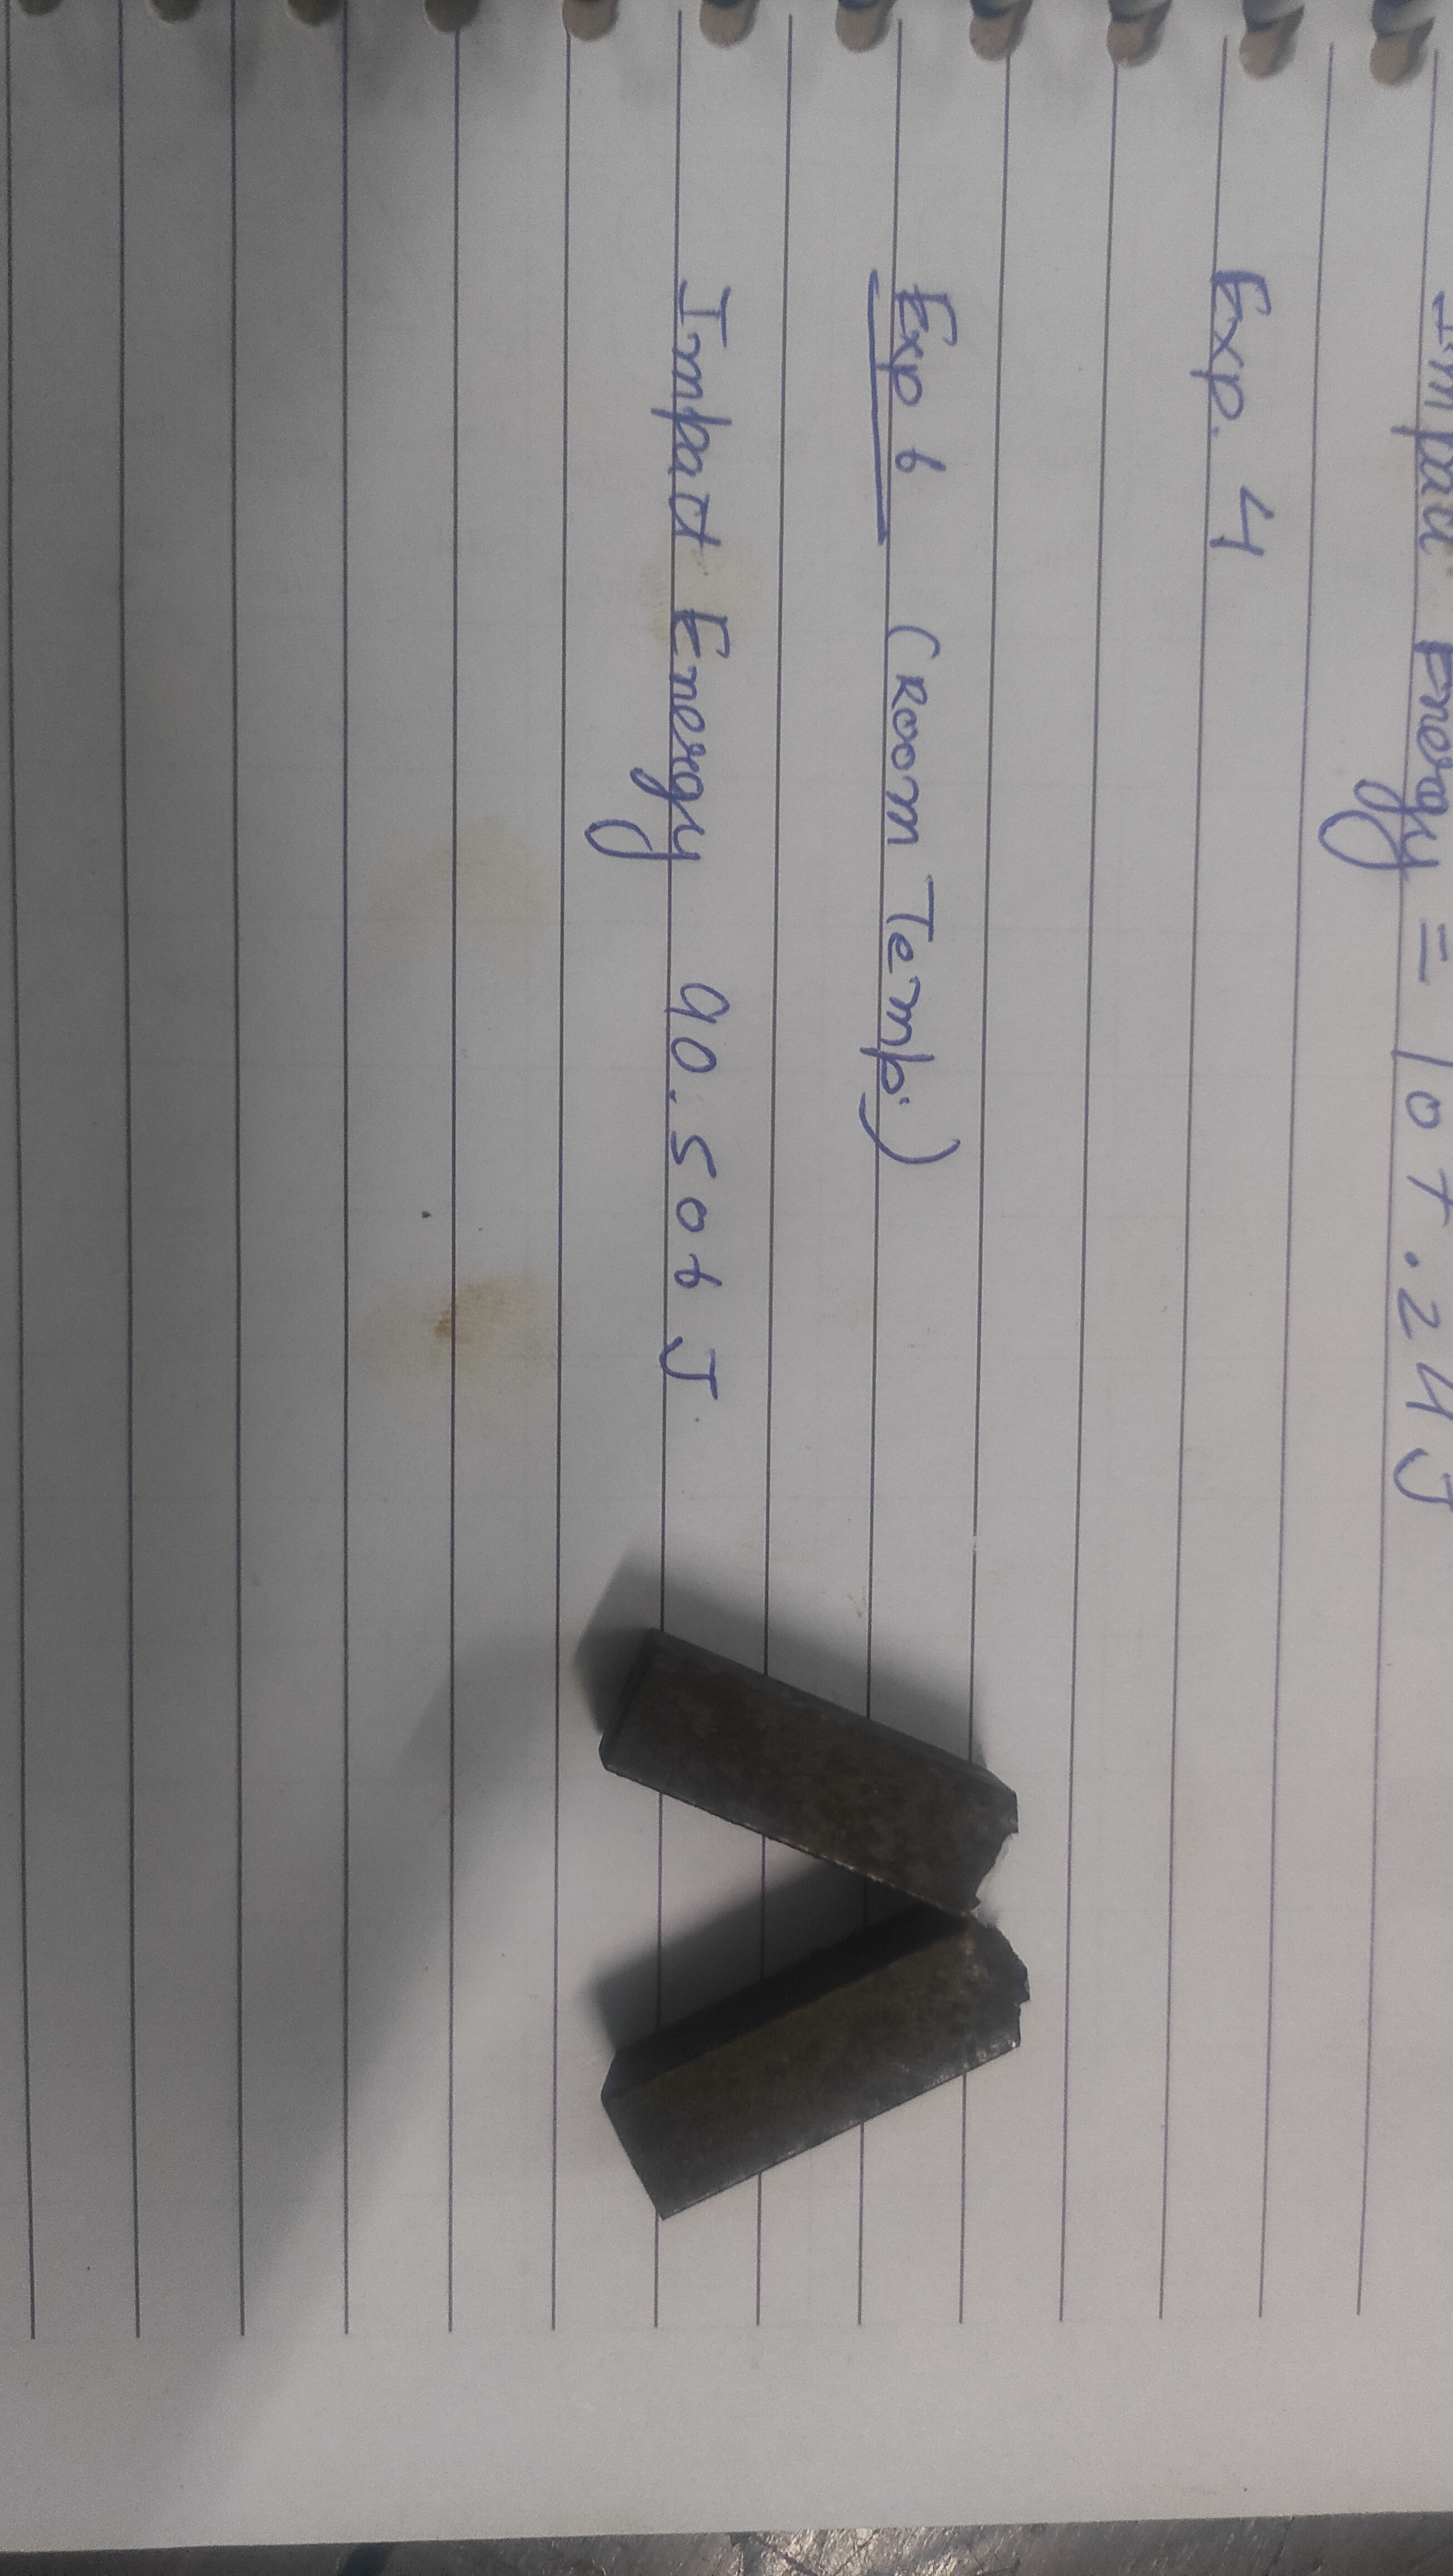 Impact Energy = 107.24 J
Exp. 4
Exp 6 (Room Temp.)
Impact Energy 90.506 J.